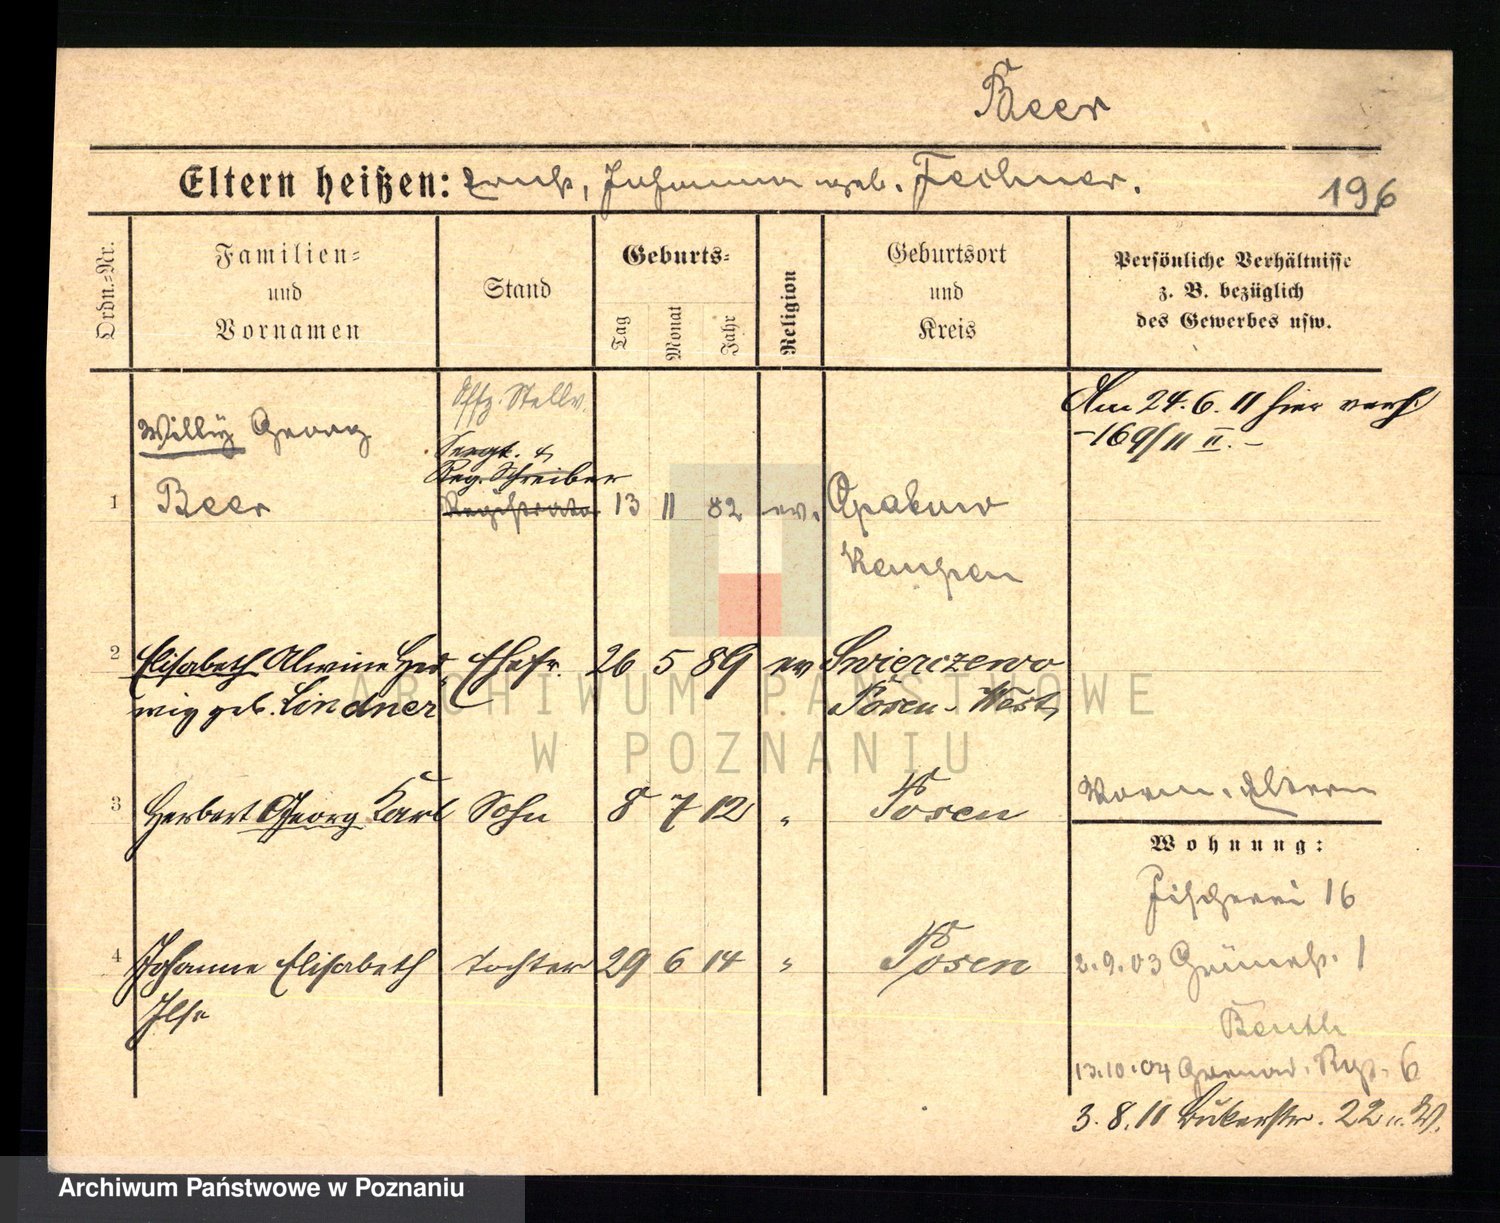 Beer
Eltern heißen: Erich, Johanna geb. Fechner.
196
Ordn.-Nr.
Familien-
und
Vornamen
Stand
Geburts-
Tag
Monat
Jahr
Religion
Geburtsort
und
Kreis
Persönliche Verhältnisse
z. B. bezüglich
des Gewerbes usw.
Offz. Stellv.
Am 24.6.11 hier verh.
-169/11 II.-
Willy Georg
Sergt. &
Reg. Schreiber
1 Beer Registrator 13 11 82 ev. Opatow
Kempen
2 Elisabeth Alwine Hed- Ehefr. 26 5 89 ev Swierczewo
wig geb. Lindner Posen-West
3 Herbert Georg Karl Sohn 8 7 12 " Posen
Vorm. Eltern
Wohnung:
Fischerei 16
4 Johanne Elisabeth Tochter 29 6 14 " Posen
Ilse
2.9.03 1
13.10.04 Grenad. Rgt. 6
3.8.11 Bukerstr. 22
ARCHIWUM PAŃSTWOWE
W POZNANIU
Archiwum Państwowe w Poznaniu